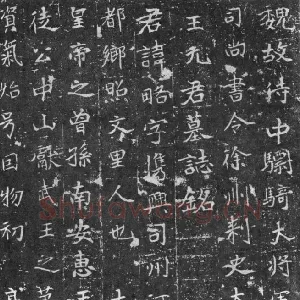 魏故侍中驃騎大將
司尚書令徐州刺史
王元君墓誌銘
君諱略字儁興司州
都鄉照文里人也
皇帝之曾孫南安惠王
徒公中山獻武王之
資氣始号物初
shufawang.cn